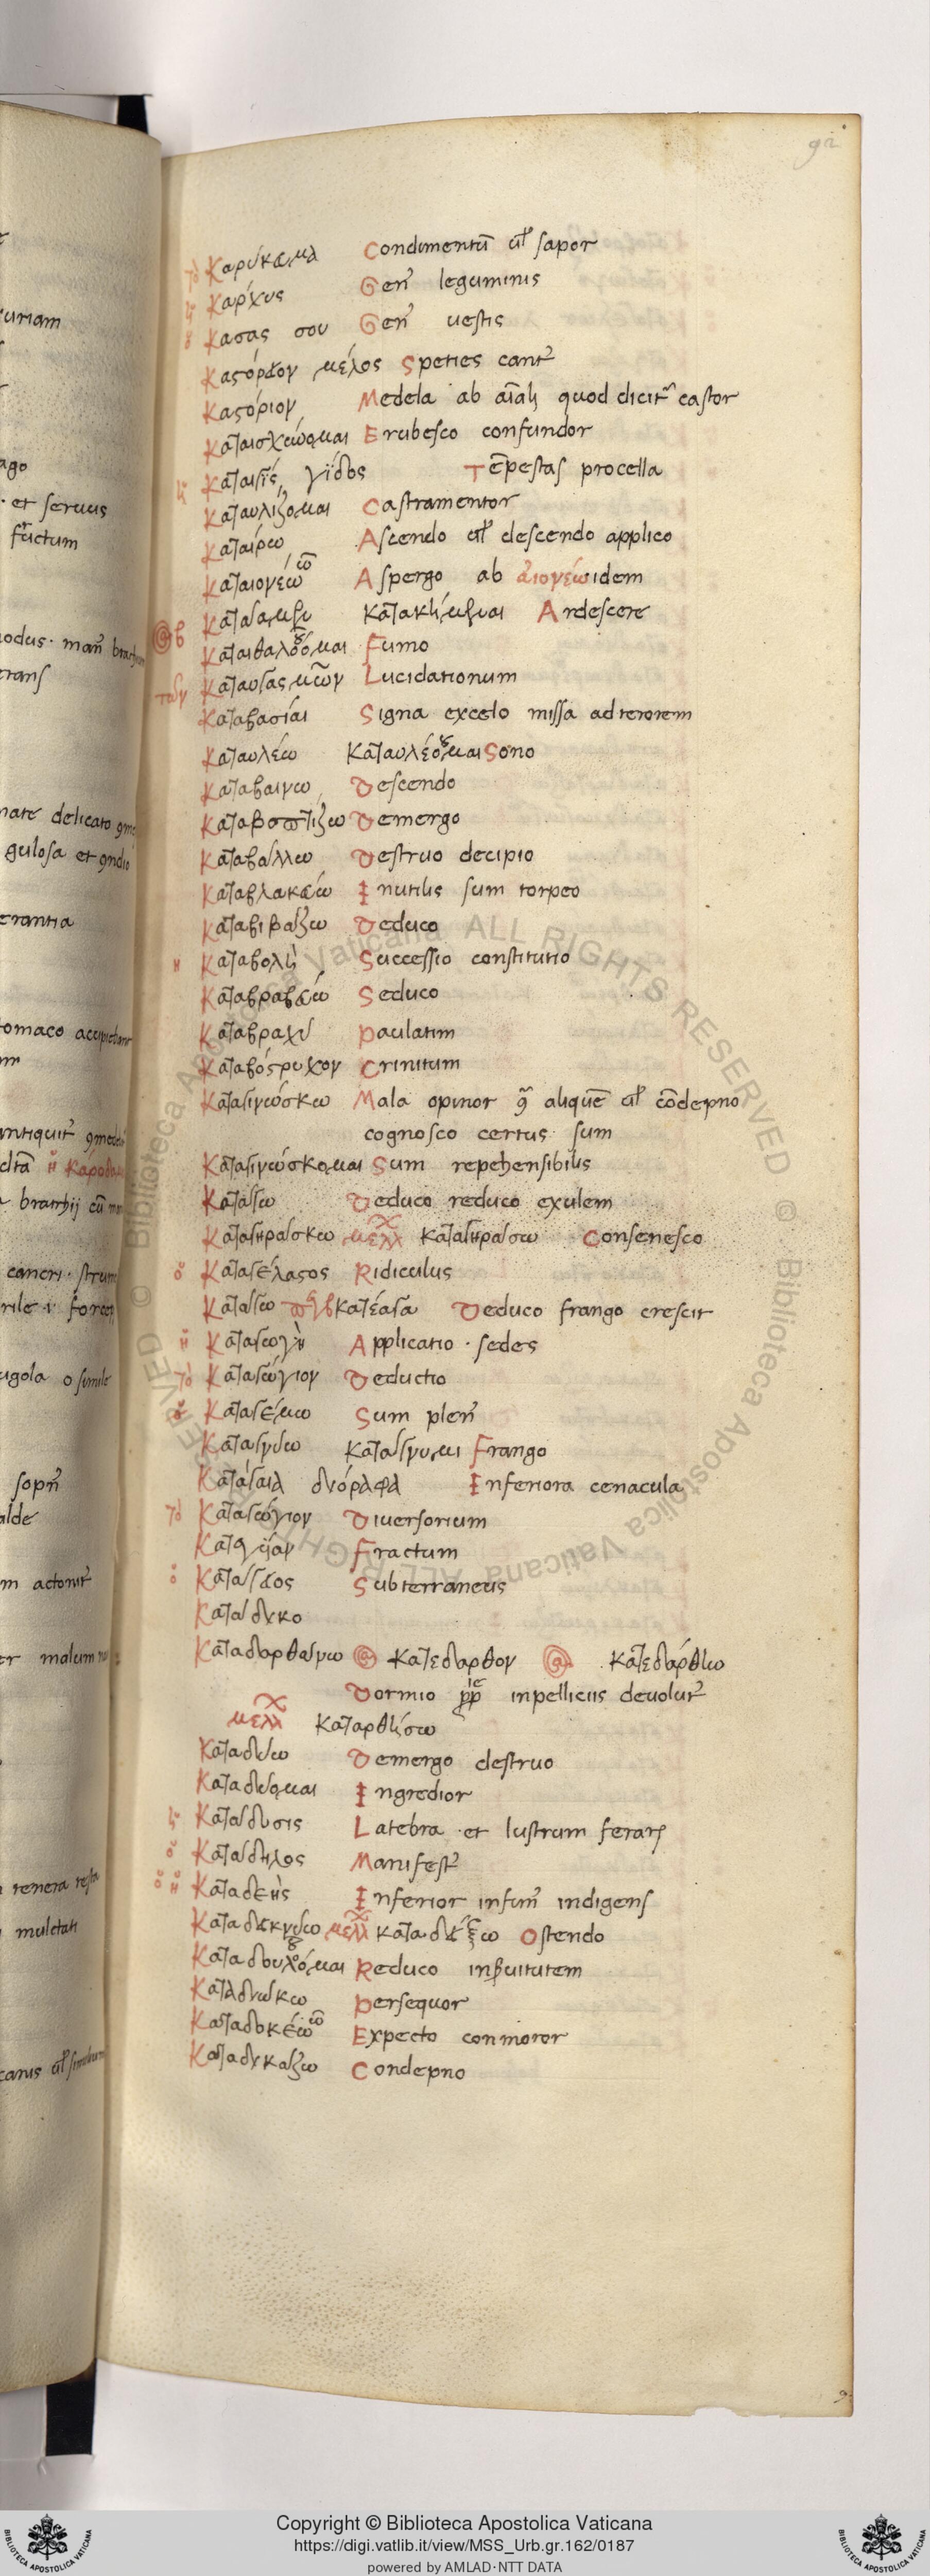 92
τὸ Καρύκευμα Condimentū ul̄ sapor
ἡ Καρχυς Gen⁹ leguminis
ὁ Κασας σου Gen⁹ uestis
Καςόρδον μέλος Speties cant⁹
Καςόριον Medela ab aīali quod dicit̄ castor
Καταισχύνομαι Erubesco confundor
ἡ Καταιγὶς γίδος Tēpestas procella
Καταυλίζομαι Castramentor
Καταίρω Ascendo ul̄ descendo applico
Καταιονέω ῶ Aspergo ab αἰονέω idem
Καταθάμψαι Ardescere
Καταιθαλόομαι Fumo
τῶν Lucidationum
Καταβασίαι Signa excelo missa ad terorem
Καταυλέω Καταυλέομαι Sono
Καταβαίνω Descendo
Καταβαπτίζω Demergo
Καταβάλλω Destruo decipio
Καταβλακεύω Inutilis sum torpeo
Καταβιβάζω Deduco
ἡ Καταβολὴ Successio constitutio
Καταβραβεύω Seduco
Καταβραχὺ Paulatim
Καταβόςρυχον Crinitum
Καταγινώσκω Mala opinor aliquē ul̄ cōdepno
cognosco certus sum
Καταγινώσκομαι Sum repehensibilis
Κατάγω Deduco reduco exulem
Καταγηράσκω μελλ Καταγηράσω Consenesco
ὁ Καταγέλαςος Ridiculus
Κατάγω κατέαγα Deduco frango crescit
ἡ Καταγωγὴ Applicatio · sedes
τὸ Καταγώγιον Deductio
Καταγέμω Sum plen⁹
Καταγνύω Κατάγνυμι Frango
Κατάγαια Inferiora cenacula
τὸ Καταγώγιον Diuersorium
Fractum
ὁ Κατάγειος Subterraneus
Καταδαρθάνω κατεδαρθον κατεδάρθην
Dormio inpelliciis deuolut⁹
μελλ καταρθήσω
Καταδύω Demergo destruo
Καταδύομαι Ingredior
ἡ Κατάδυσις Latebra et lustrum ferarꝫ
ὁ Κατάδηλος Manifest⁹
ὁ ἡ Καταδεὴς Inferior infim⁹ indigens
Καταδεικνύω μελλ καταδείξω Ostendo
Καταδουλόομαι Reduco inseruitutem
Καταδιώκω Persequor
Καταδοκέω ῶ Expecto conmoror
Καταδικάζω Condepno
Copyright © Biblioteca Apostolica Vaticana
https://digi.vatlib.it/view/MSS_Urb.gr.162/0187
powered by AMLAD·NTT DATA